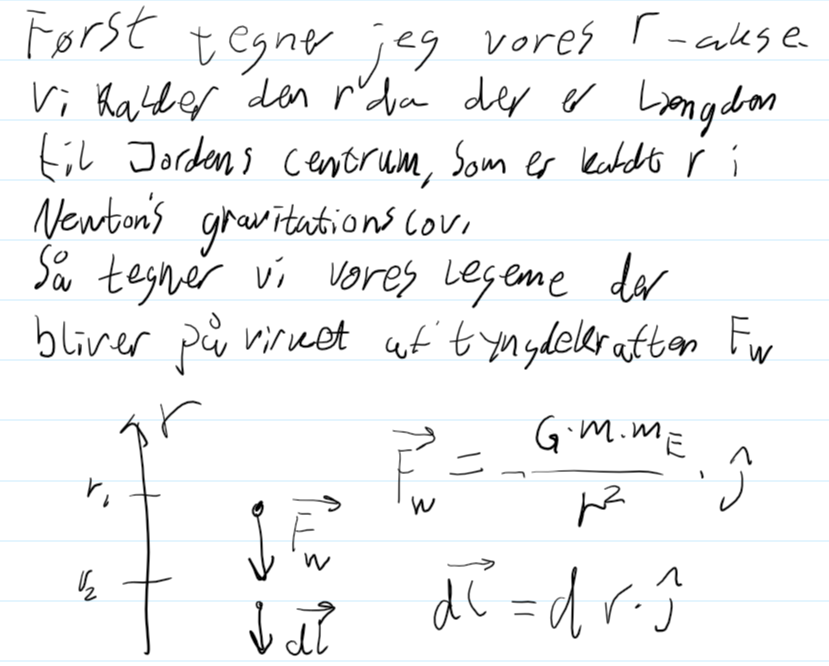 Først tegner jeg vores r-akse.
Vi kalder den r da der er Længden
til Jordens centrum, som er kaldt r i
Newton's gravitationslov.
Så tegner vi vores legeme der
bliver påvirket af tyngdekraften F_w
r
r_1
r_2
\vec{F_w}
\vec{dl}
\vec{F_w} = -\frac{G·m·m_E}{r^2}·ĵ
\vec{dl} = dr·ĵ